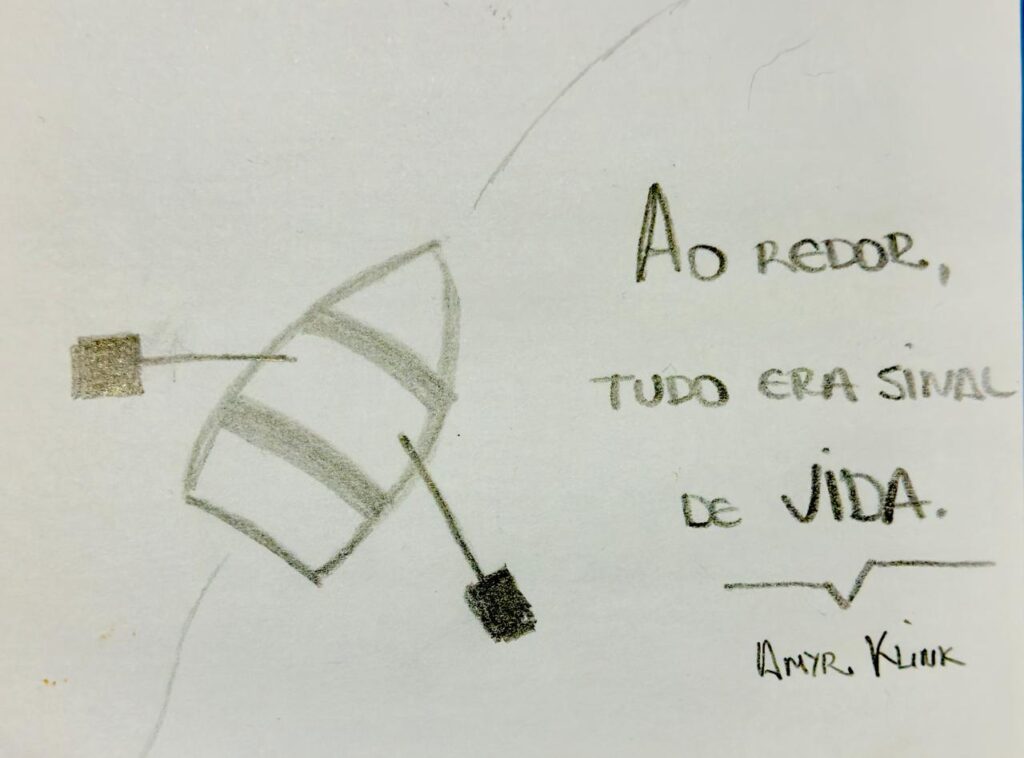 Ao REDOR,
TUDO ERA SINAL
DE VIDA.
AMYR KLINK